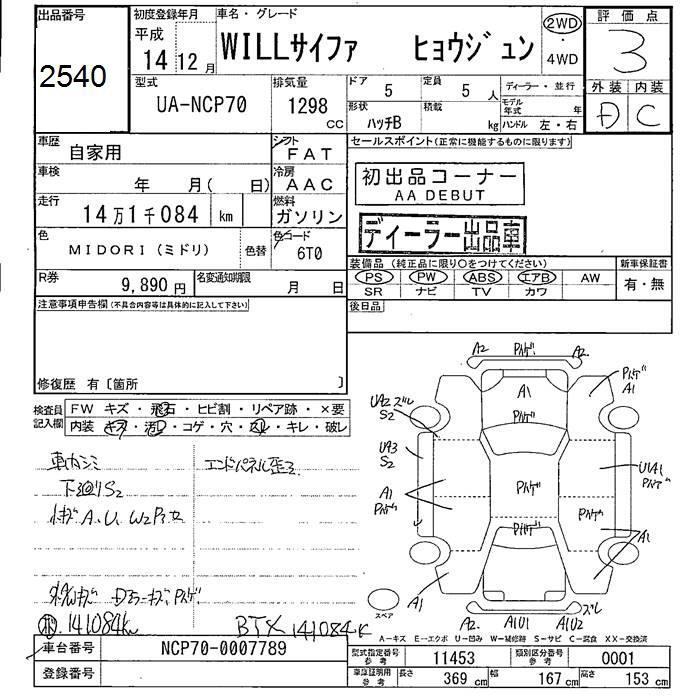 出品番号
2540
初度登録年月
平成
14 12月
車名・グレード
WILLサイファ ヒョウジュン
2WD
・
4WD
評価点
3
外装 内装
D C
型式
UA-NCP70
排気量
1298
CC
ドア
5
定員
5 人
形状
ハッチB
積載
kg
ディーラー・並行
モデル年式 年
ハンドル 左・右
車歴
自家用
シフト
FAT
車検
年 月( 日)
冷房
AAC
走行
14万1千084 km
燃料
ガソリン
色
MIDORI (ミドリ)
色替
色コード
6T0
R券
9,890 円
名変通知期限
月 日
セールスポイント(正常に機能するものに限ります)
初出品コーナー
AA DEBUT
ディーラー出品車
装備品(純正品に限り○をつけてください)
新車保証書
PS PW ABS エアB AW
SR ナビ TV カワ
有・無
注意事項申告欄(不具合内容等は具体的に記入して下さい)
後日品
修復歴 有〔箇所 〕
検査員記入欄
FW キズ・飛石・ヒビ割・リペア跡・×要
内装 キズ・汚レ・コゲ・穴・スレ・キレ・破レ
エンドパネル歪ミ
下廻りS2
A.U.
141084km
BTX 141084K
A2 A2
A1
A1
UA2 ズレ
S2
UA3
S2
A1
UA1
A1
A1
A2 A1U1 A1U2
ズレ
スペア
A-キズ E-エクボ U-凹み W-補修跡 S-サビ C-腐食 XX-交換済
車台番号
NCP70-0007789
登録番号
型式指定番号
参考
11453
類別区分番号
参考
0001
車庫証明用
参考
長さ
369 cm
幅
167 cm
高さ
153 cm